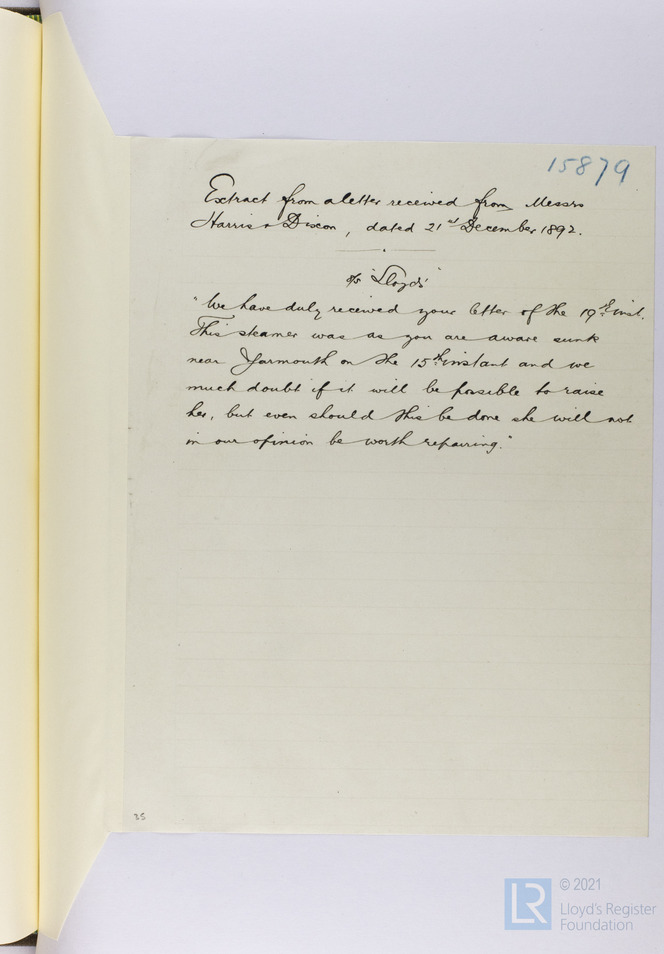 15879
Extract from a letter received from Messrs
Harris & Dixon, dated 21st December 1892.
s/s "Lloyds"
"We have duly received your letter of the 19th inst.
This steamer was as you are aware sunk
near Yarmouth on the 15th instant and we
much doubt if it will be possible to raise
her, but even should this be done she will not
in our opinion be worth repairing."
35
LR © 2021
Lloyd's Register
Foundation